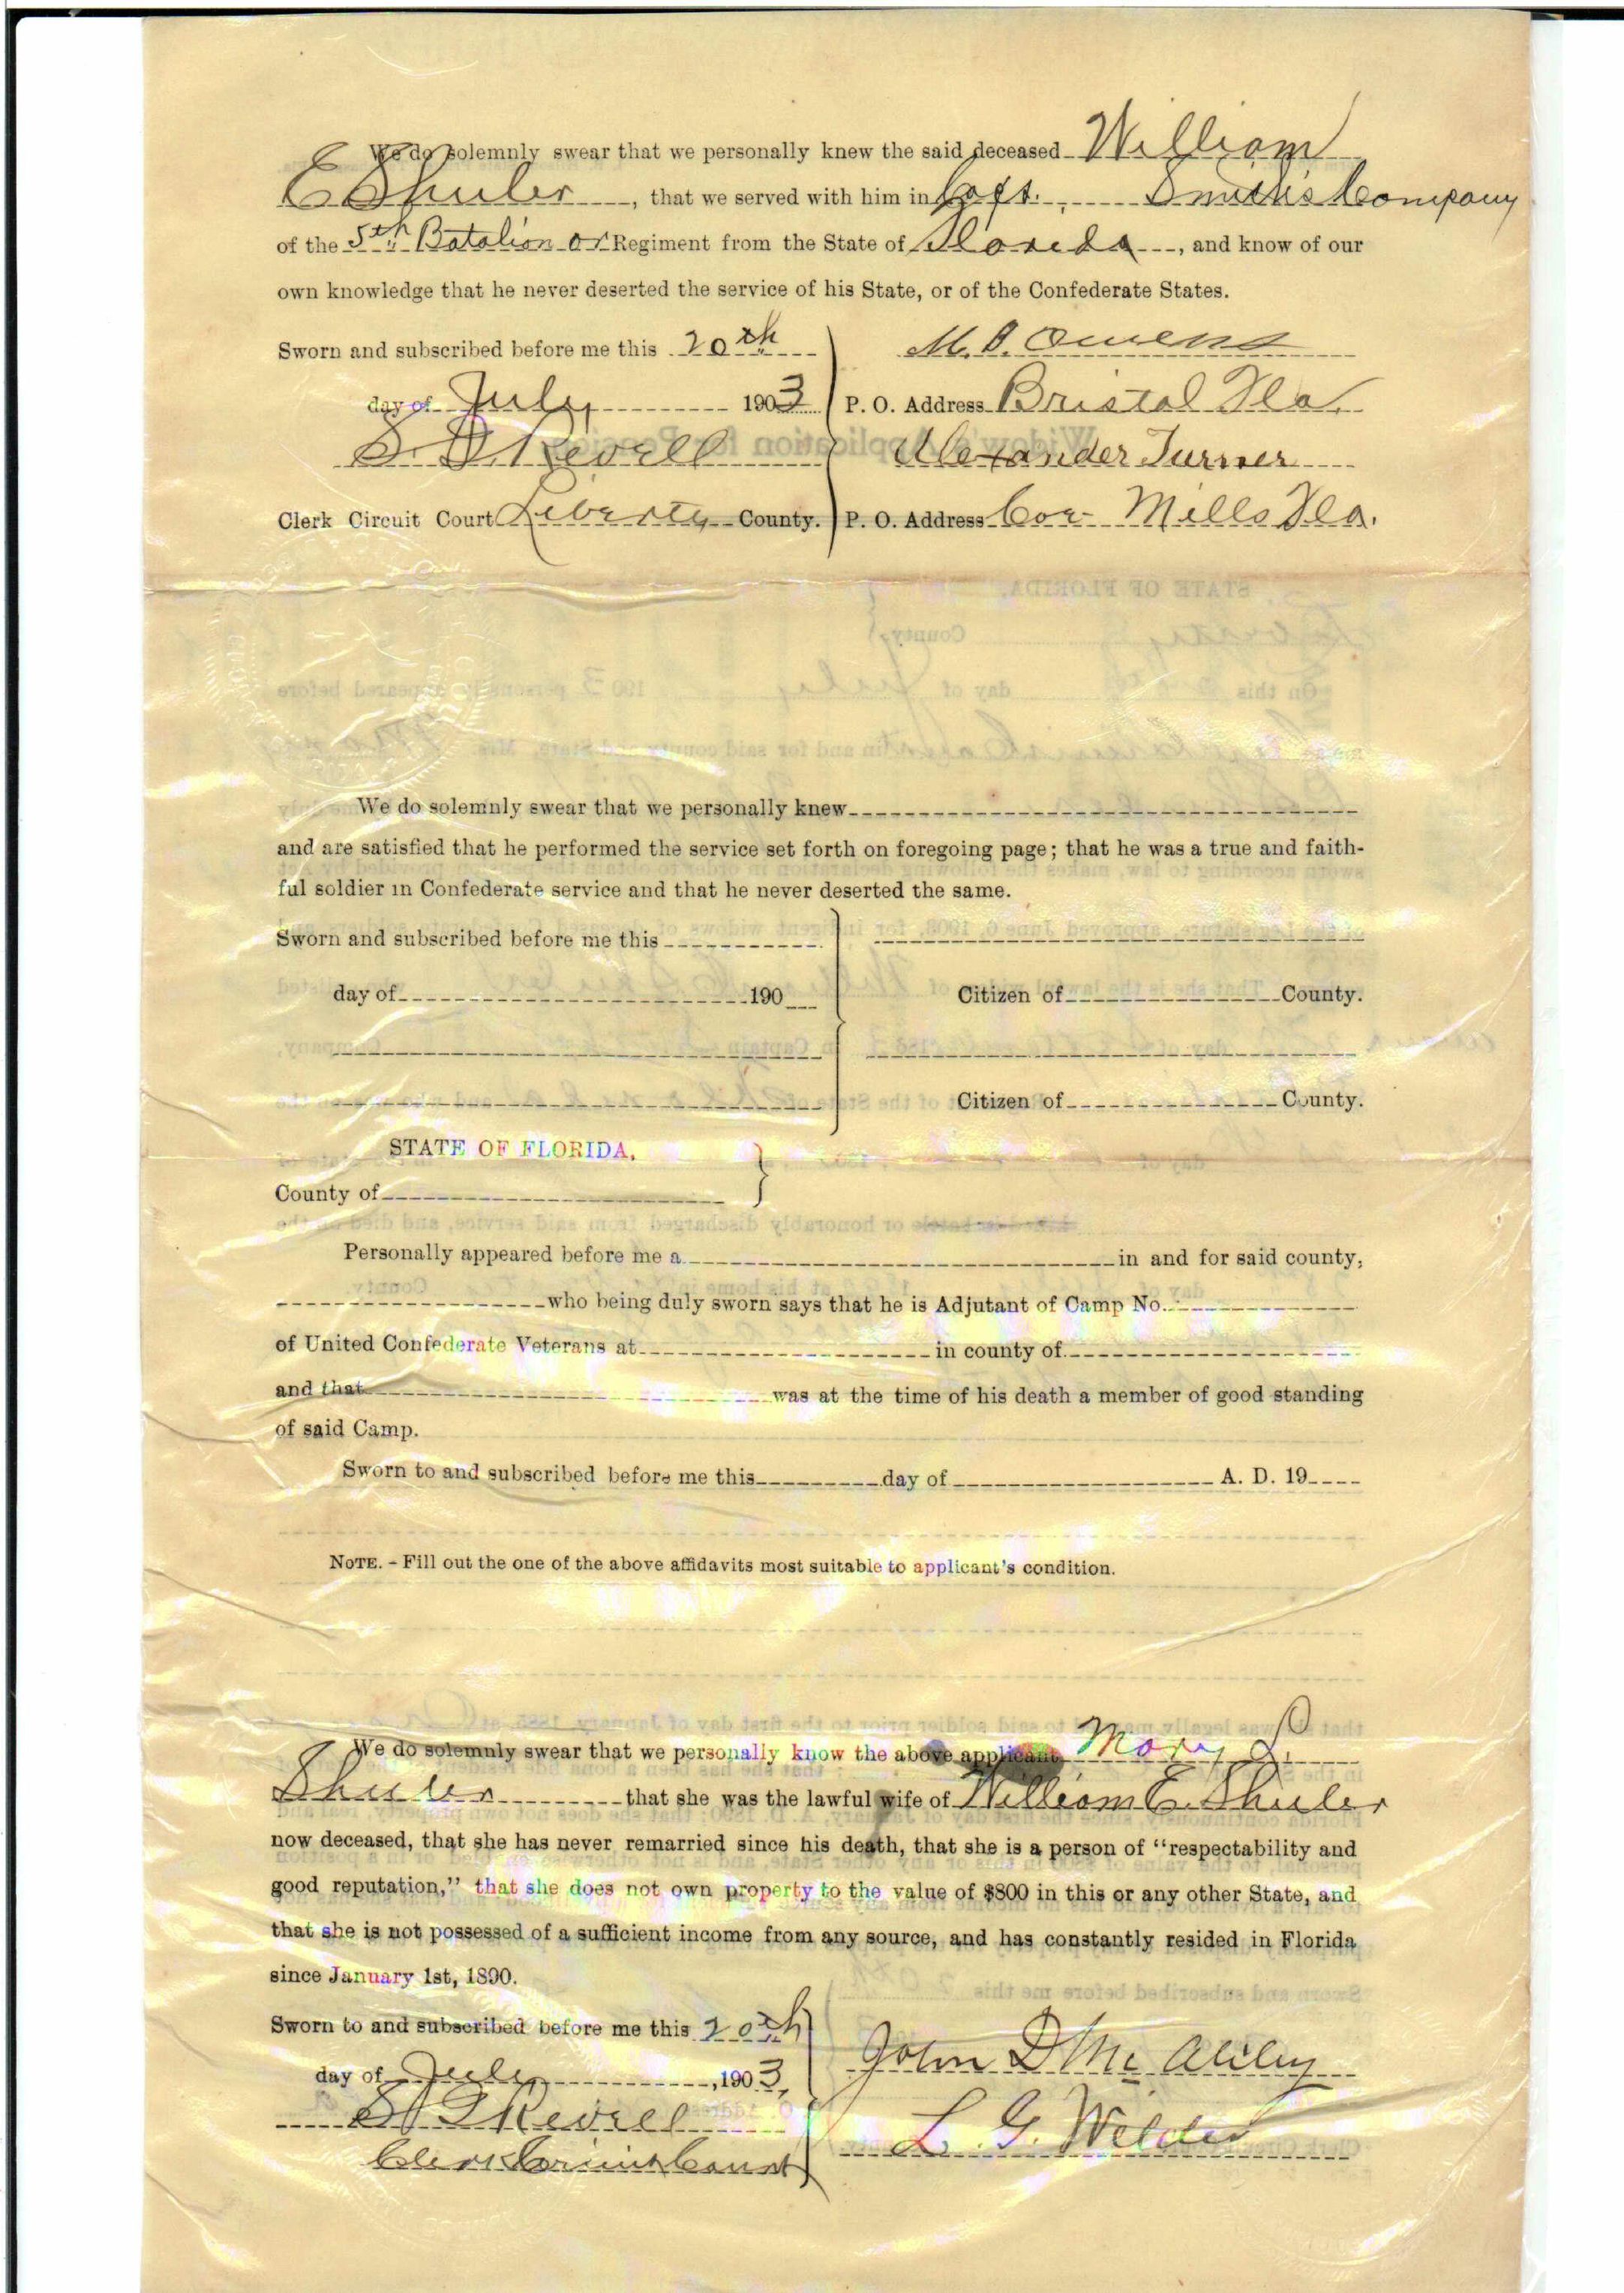 We do solemnly swear that we personally knew the said deceased William
E Shuler, that we served with him in Capt. Smith's Company
of the 5th Batalion or Regiment from the State of Florida, and know of our
own knowledge that he never deserted the service of his State, or of the Confederate States.
Sworn and subscribed before me this 20th
M. B. Owens
day of July 1903
P. O. Address Bristol Fla.
S. D. Revell
Alexander Turner
Clerk Circuit Court Liberty County.
P. O. Address Coe Mills Fla.
We do solemnly swear that we personally knew
and are satisfied that he performed the service set forth on foregoing page; that he was a true and faith-
ful soldier in Confederate service and that he never deserted the same.
Sworn and subscribed before me this
day of 190
Citizen of County.
Citizen of County.
STATE OF FLORIDA,
County of
Personally appeared before me a in and for said county,
who being duly sworn says that he is Adjutant of Camp No.
of United Confederate Veterans at in county of
and that was at the time of his death a member of good standing
of said Camp.
Sworn to and subscribed before me this day of A. D. 19
NOTE. - Fill out the one of the above affidavits most suitable to applicant's condition.
We do solemnly swear that we personally know the above applicant Mary L.
Shuler that she was the lawful wife of William E. Shuler
now deceased, that she has never remarried since his death, that she is a person of "respectability and
good reputation," that she does not own property to the value of $800 in this or any other State, and
that she is not possessed of a sufficient income from any source, and has constantly resided in Florida
since January 1st, 1890.
Sworn to and subscribed before me this 20th
John D Mc Aliley
day of July, 1903,
S D Revell
L. G. Wilder
Clerk Circuit Court